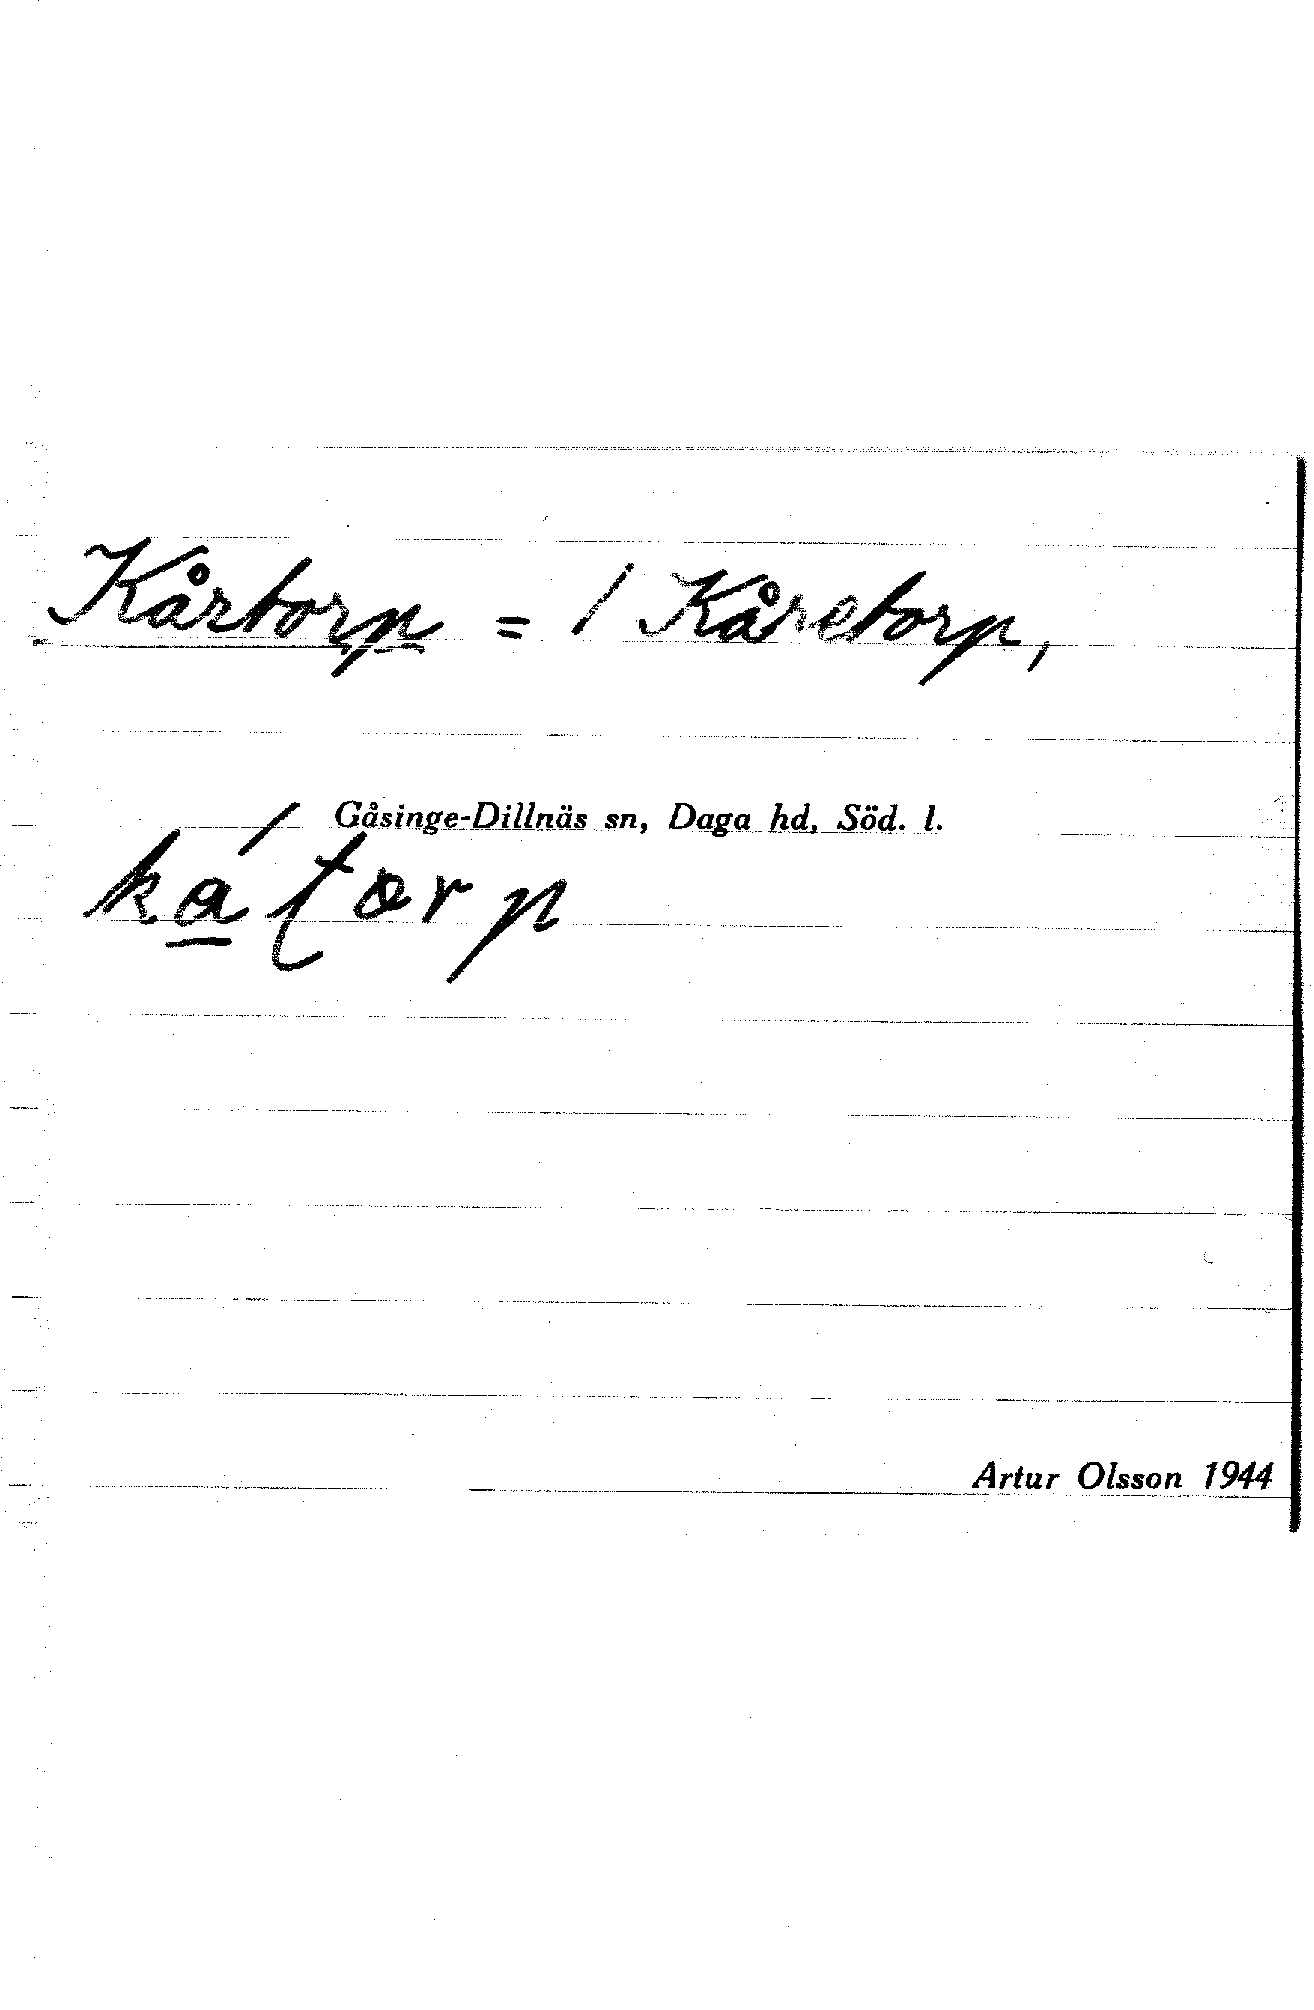 Kårtorp = / Kåretorp,
Gåsinge-Dillnäs sn, Daga hd, Söd. l.
ka̲´ʈɷrp
Artur Olsson 1944